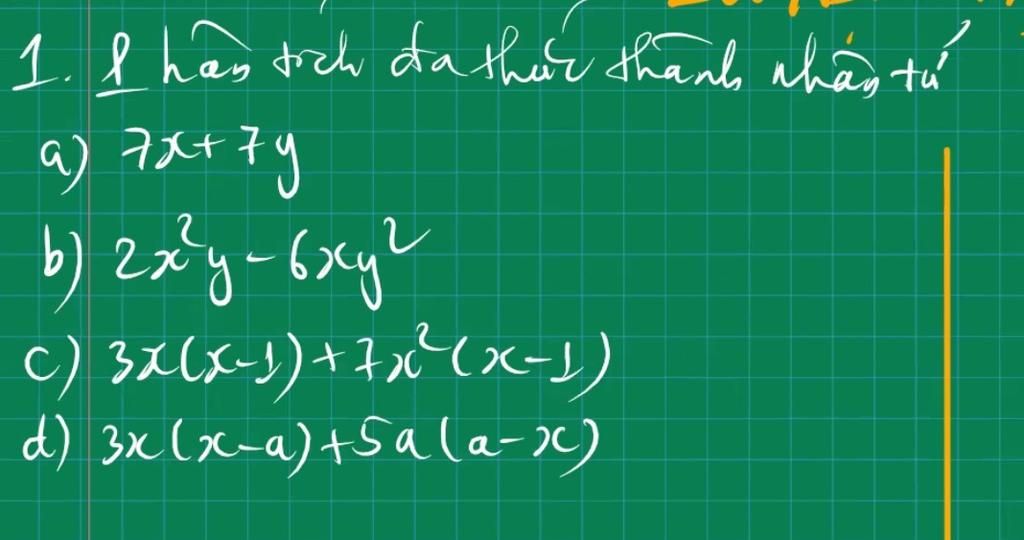 1. Phân tích đa thức thành nhân tử
a) 7x + 7y
b) 2x²y - 6xy²
c) 3x(x-1) + 7x²(x-1)
d) 3x(x-a) + 5a(a-x)